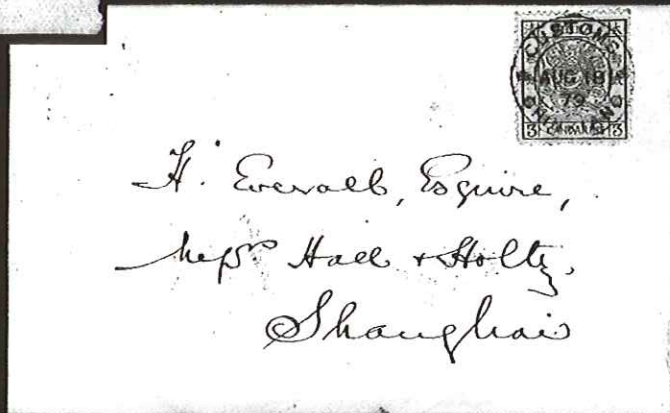 CUSTOMS
AUG 18
79
CHINKIANG
3 CANDARINS 3
H. Everall, Esquire,
Messrs Hall & Holtz,
Shanghai